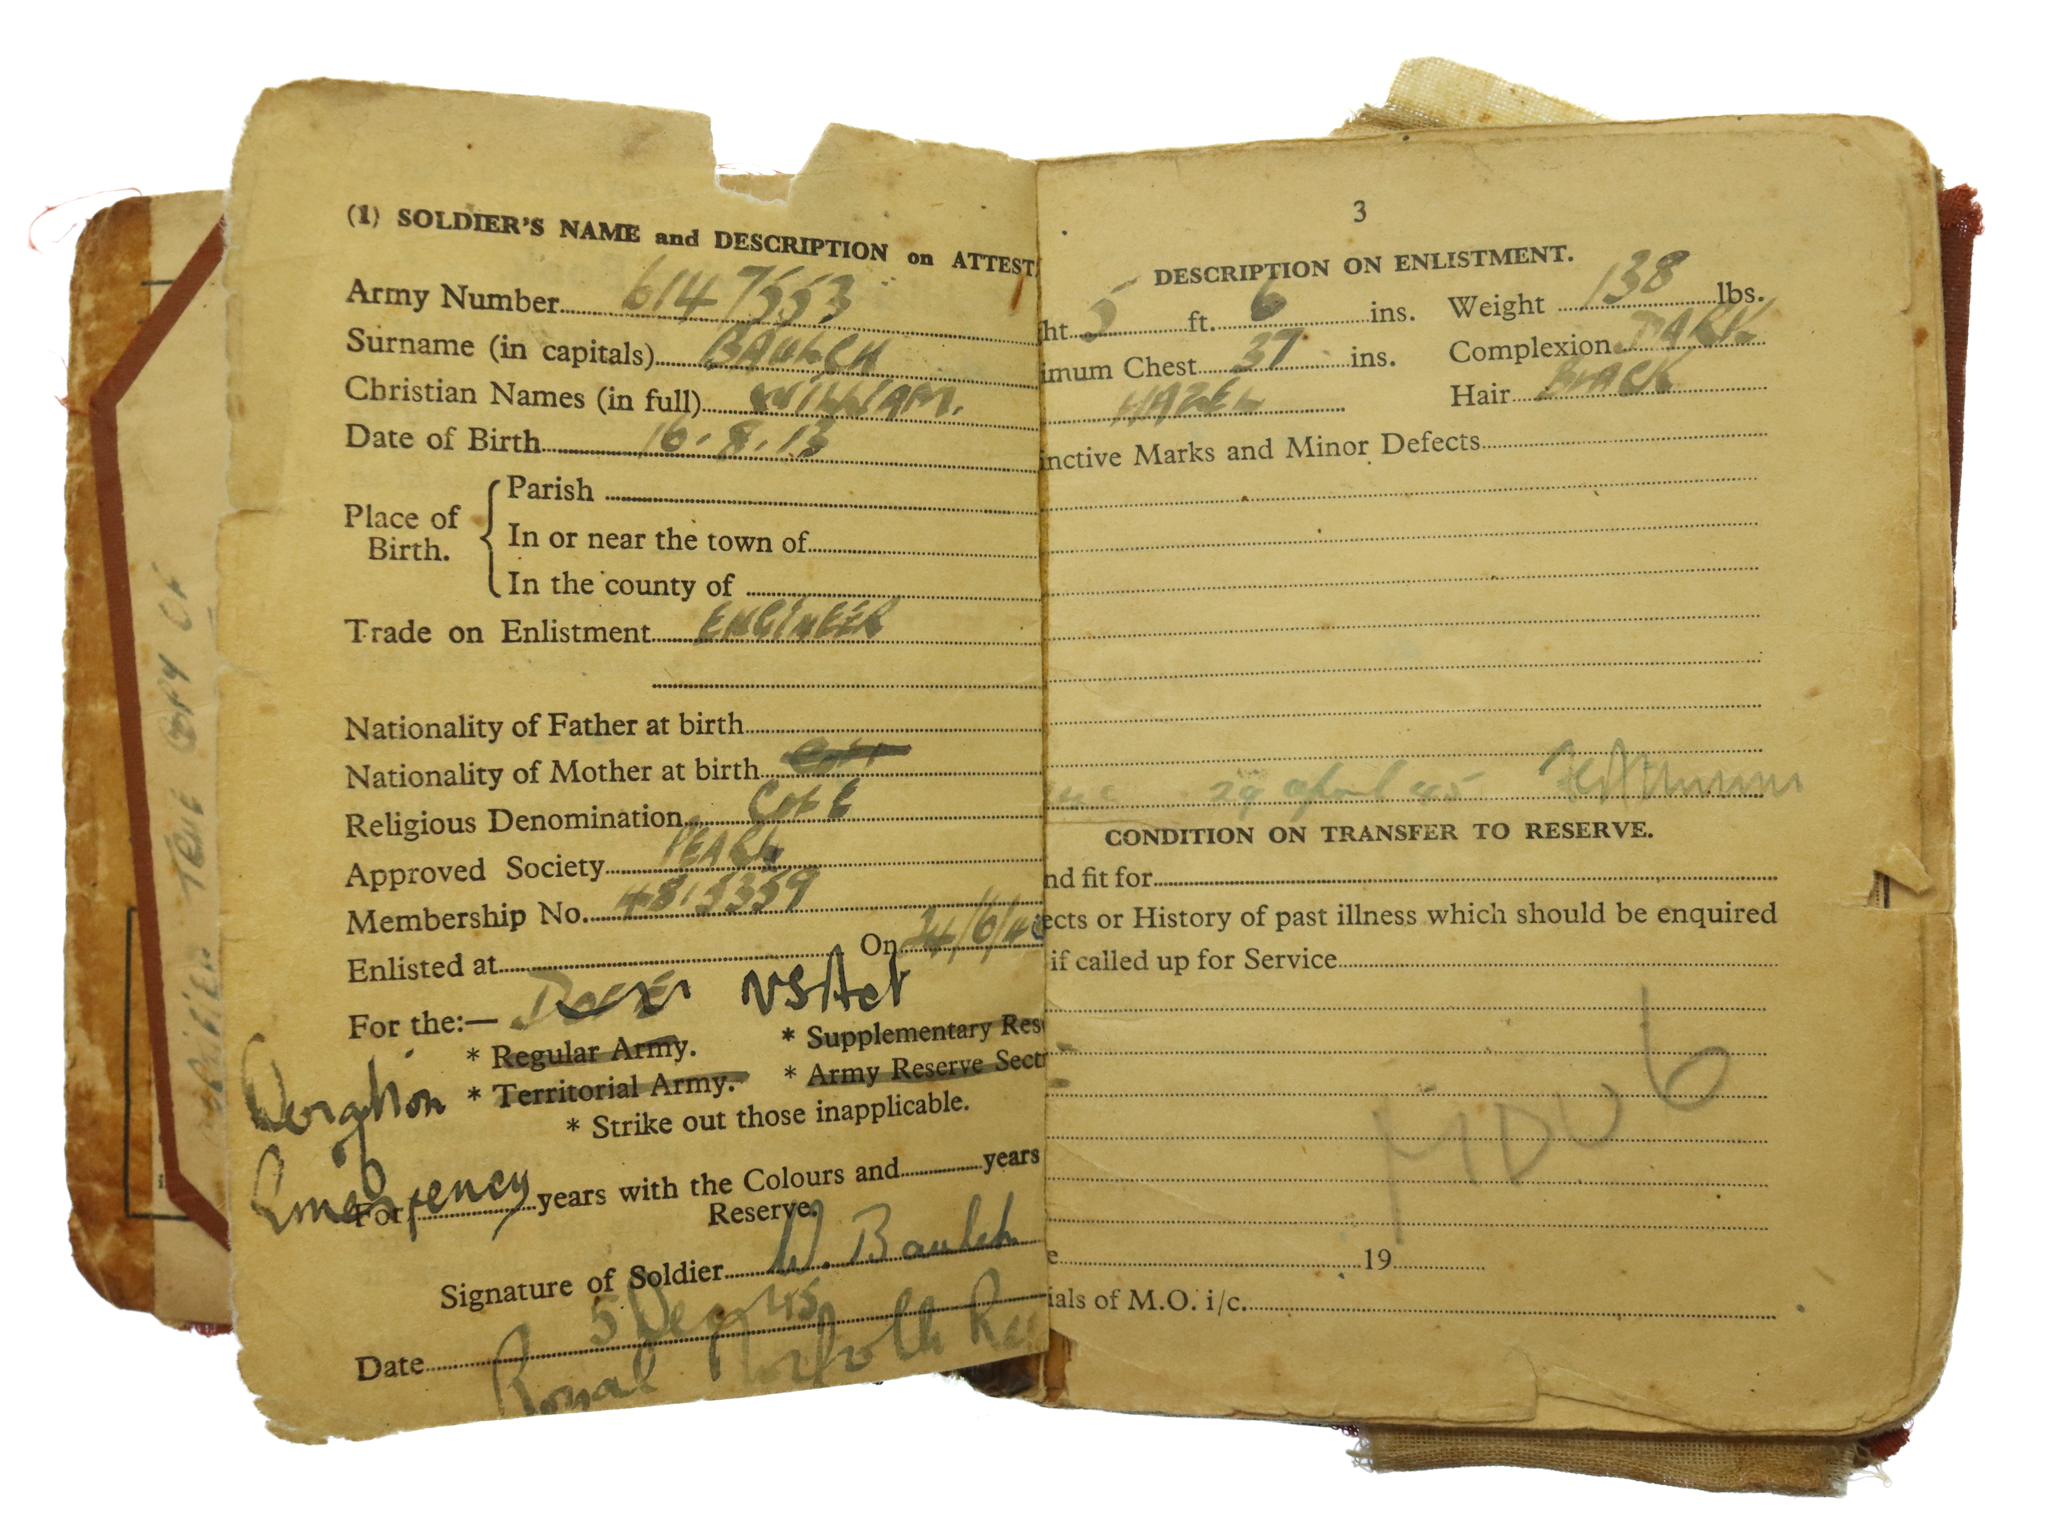 (1) SOLDIER'S NAME and DESCRIPTION on ATTEST
Army Number 6147553
Surname (in capitals) BAULCH
Christian Names (in full) WILLIAM.
Date of Birth 16.8.13
Place of Birth.
Parish
In or near the town of
In the county of
Trade on Enlistment ENGINEER
Nationality of Father at birth
Nationality of Mother at birth C of E
Religious Denomination C of E
Approved Society PEARL
Membership No. 4815359
Enlisted at On 24/6/40
For the:— NS Act
* Regular Army. * Supplementary Res
* Territorial Army. * Army Reserve Sect
* Strike out those inapplicable.
Duration
Emergency
For years with the Colours and years
Reserve.
Signature of Soldier W. Baulch
5 Dec 45
Date
Royal Norfolk Re
3
DESCRIPTION ON ENLISTMENT.
ht 5 ft. 6 ins. Weight 138 lbs.
imum Chest 37 ins. Complexion DARK
HAZEL Hair BLACK
inctive Marks and Minor Defects
29 April 45
CONDITION ON TRANSFER TO RESERVE.
nd fit for
ects or History of past illness which should be enquired
if called up for Service
MDU 6
e 19
ials of M.O. i/c.
TRUE COPY OF